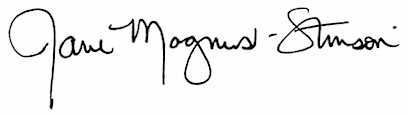 Jane Magnus-Stinson